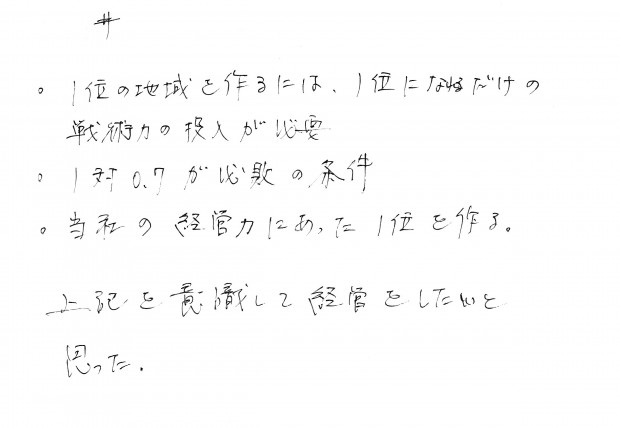 ・1位の地域を作るには、1位になれるだけの
戦術力の投入が必要
・1対0.7が必敗の条件
・当社の経営力にあった1位を作る。
上記を意識して経営をしたいと
思った.